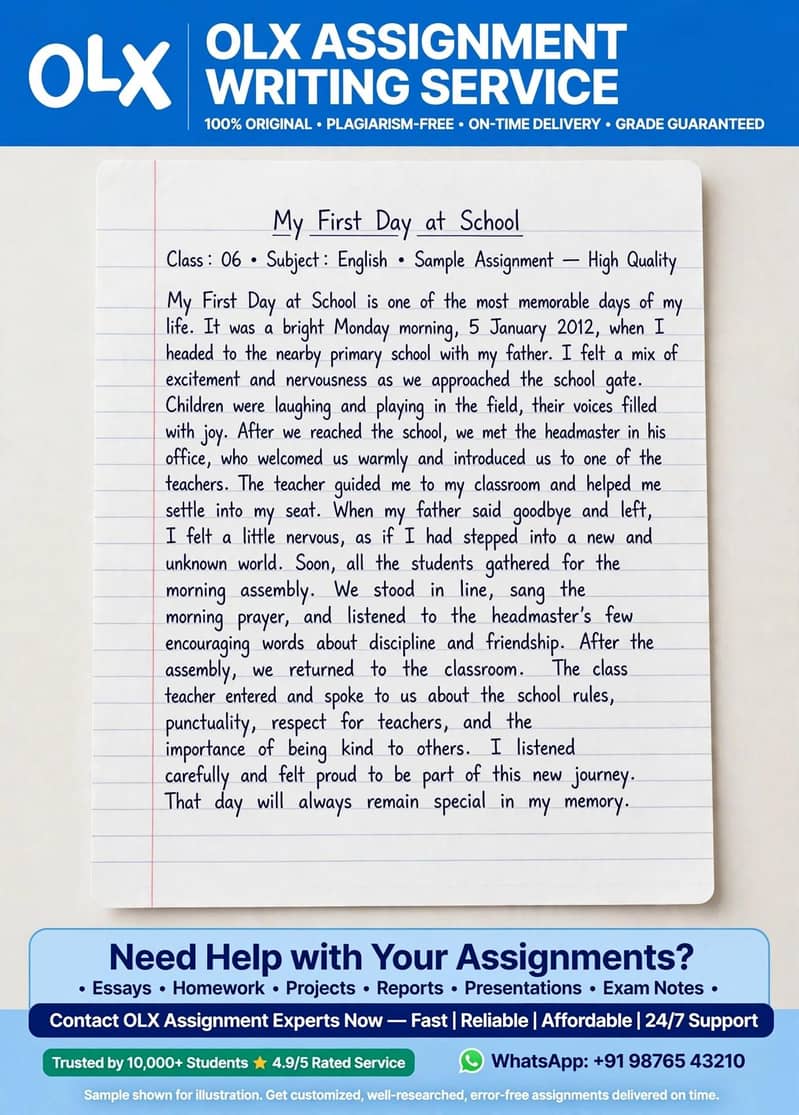 OLX
OLX ASSIGNMENT
WRITING SERVICE
100% ORIGINAL • PLAGIARISM-FREE • ON-TIME DELIVERY • GRADE GUARANTEED
My First Day at School
Class: 06 • Subject: English • Sample Assignment — High Quality
My First Day at School is one of the most memorable days of my
life. It was a bright Monday morning, 5 January 2012, when I
headed to the nearby primary school with my father. I felt a mix of
excitement and nervousness as we approached the school gate.
Children were laughing and playing in the field, their voices filled
with joy. After we reached the school, we met the headmaster in his
office, who welcomed us warmly and introduced us to one of the
teachers. The teacher guided me to my classroom and helped me
settle into my seat. When my father said goodbye and left,
I felt a little nervous, as if I had stepped into a new and
unknown world. Soon, all the students gathered for the
morning assembly. We stood in line, sang the
morning prayer, and listened to the headmaster's few
encouraging words about discipline and friendship. After the
assembly, we returned to the classroom. The class
teacher entered and spoke to us about the school rules,
punctuality, respect for teachers, and the
importance of being kind to others. I listened
carefully and felt proud to be part of this new journey.
That day will always remain special in my memory.
Need Help with Your Assignments?
• Essays • Homework • Projects • Reports • Presentations • Exam Notes •
Contact OLX Assignment Experts Now — Fast | Reliable | Affordable | 24/7 Support
Trusted by 10,000+ Students ⭐ 4.9/5 Rated Service
WhatsApp: +91 98765 43210
Sample shown for illustration. Get customized, well-researched, error-free assignments delivered on time.